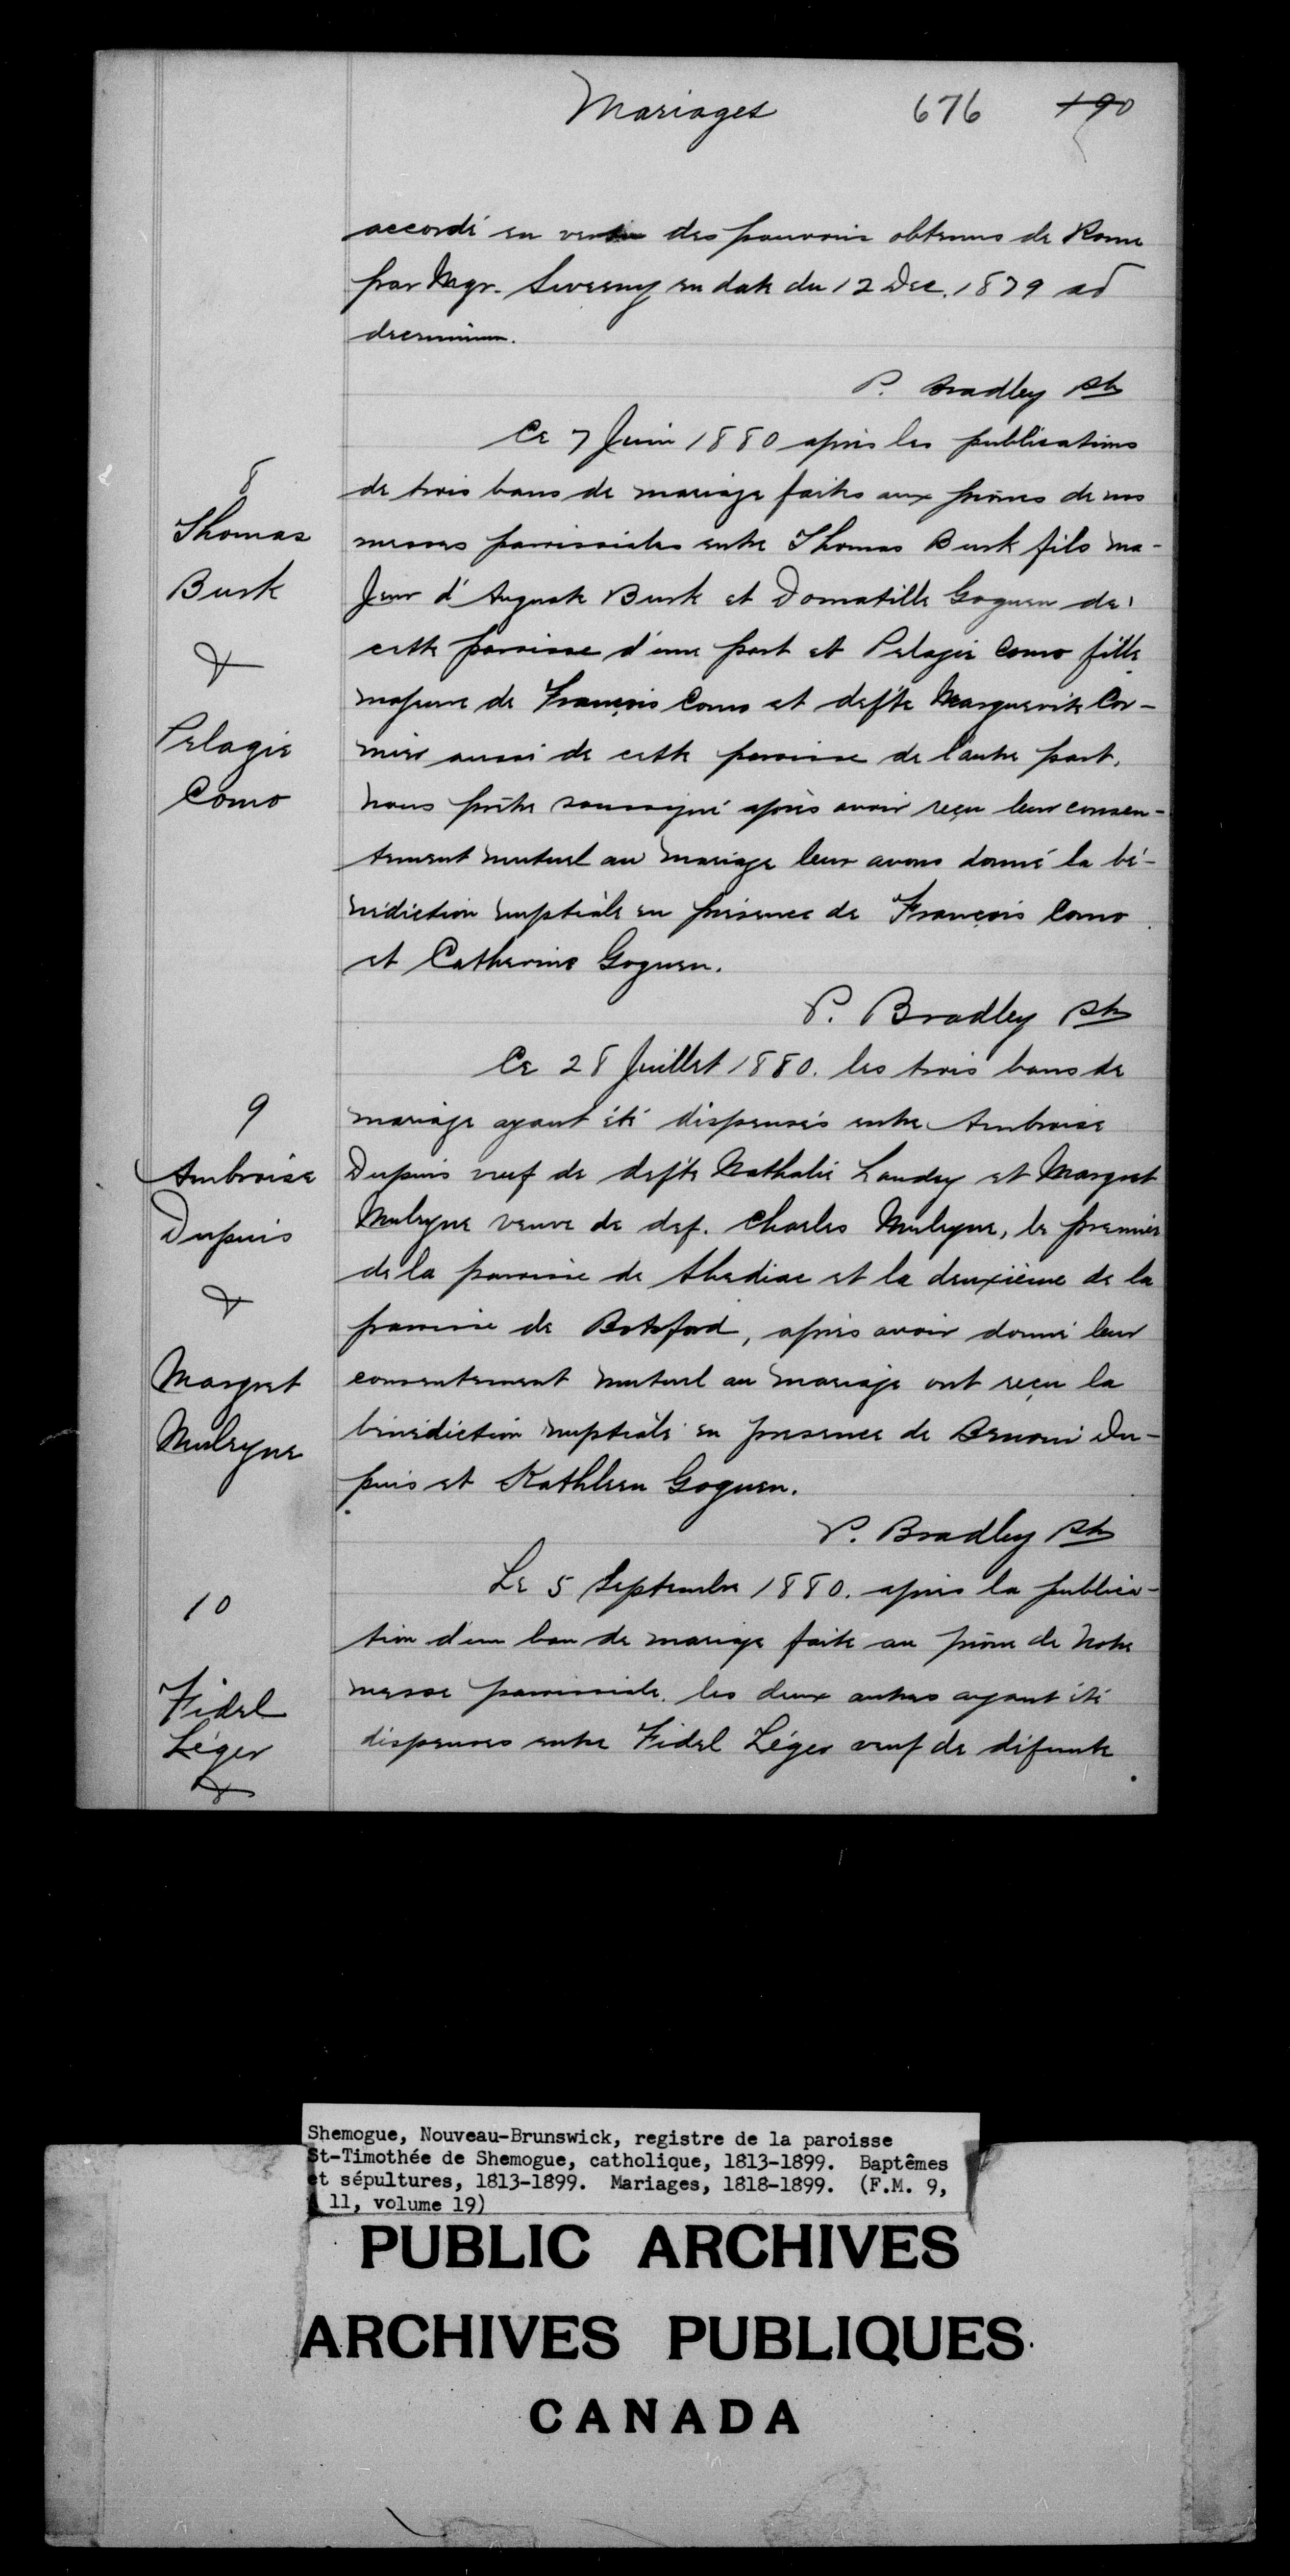 Mariages 676 190
accordé en vertu des pouvoirs obtenus de Rome
par Mgr. Sweeny en date du 12 Dec. 1879 ad
decennium.
P. Bradley Ptr
8
Thomas
Burk
&
Pelagie
Como
Ce 7 Juin 1880 après les publications
de trois bans de mariage faites aux prônes de nos
messes paroissiales entre Thomas Burk fils ma-
jeur d'Auguste Burk et Domatille Goguen de
cette paroisse d'une part et Pelagie Como fille
majeure de François Como et defte Marguerite Cor-
mier aussi de cette paroisse de l'autre part,
nous prêtre soussigné après avoir reçu leur consen-
tement mutuel au mariage leur avons donné la bé-
nédiction nuptiale en présence de François Como
et Catherine Goguen.
P. Bradley Ptr
9
Ambroise
Dupuis
&
Margret
Mulryne
Ce 28 Juillet 1880. les trois bans de
mariage ayant été dispensés entre Ambroise
Dupuis veuf de defte Nathalie Landry et Margret
Mulryne veuve de def. Charles Mulryne, le premier
de la paroisse de Shediac et la deuxième de la
paroisse de Botsford, après avoir donné leur
consentement mutuel au mariage ont reçu la
bénédiction nuptiale en presence de Benoni Du-
puis et Kathleen Goguen.
P. Bradley Ptr
10
Fidel
Léger
&
Le 5 Septembre 1880. après la publica-
tion d'un ban de mariage faite au prône de notre
messe paroissiale, les deux autres ayant été
dispenses entre Fidel Léger veuf de défunte
Shemogue, Nouveau-Brunswick, registre de la paroisse
St-Timothée de Shemogue, catholique, 1813-1899. Baptêmes
et sépultures, 1813-1899. Mariages, 1818-1899. (F.M. 9,
11, volume 19)
PUBLIC ARCHIVES
ARCHIVES PUBLIQUES
CANADA